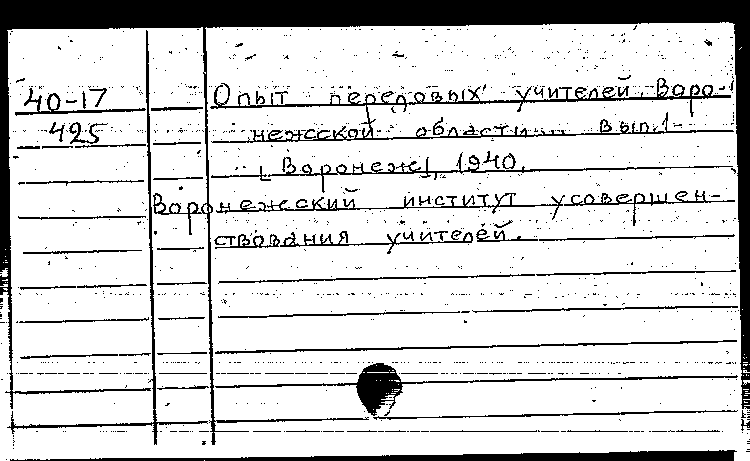 40-17 Опыт передовых учителей Воро-
425 нежской области... Вып. 1-
[Воронеж], 1940.
Воронежский институт усовершен-
ствования учителей.